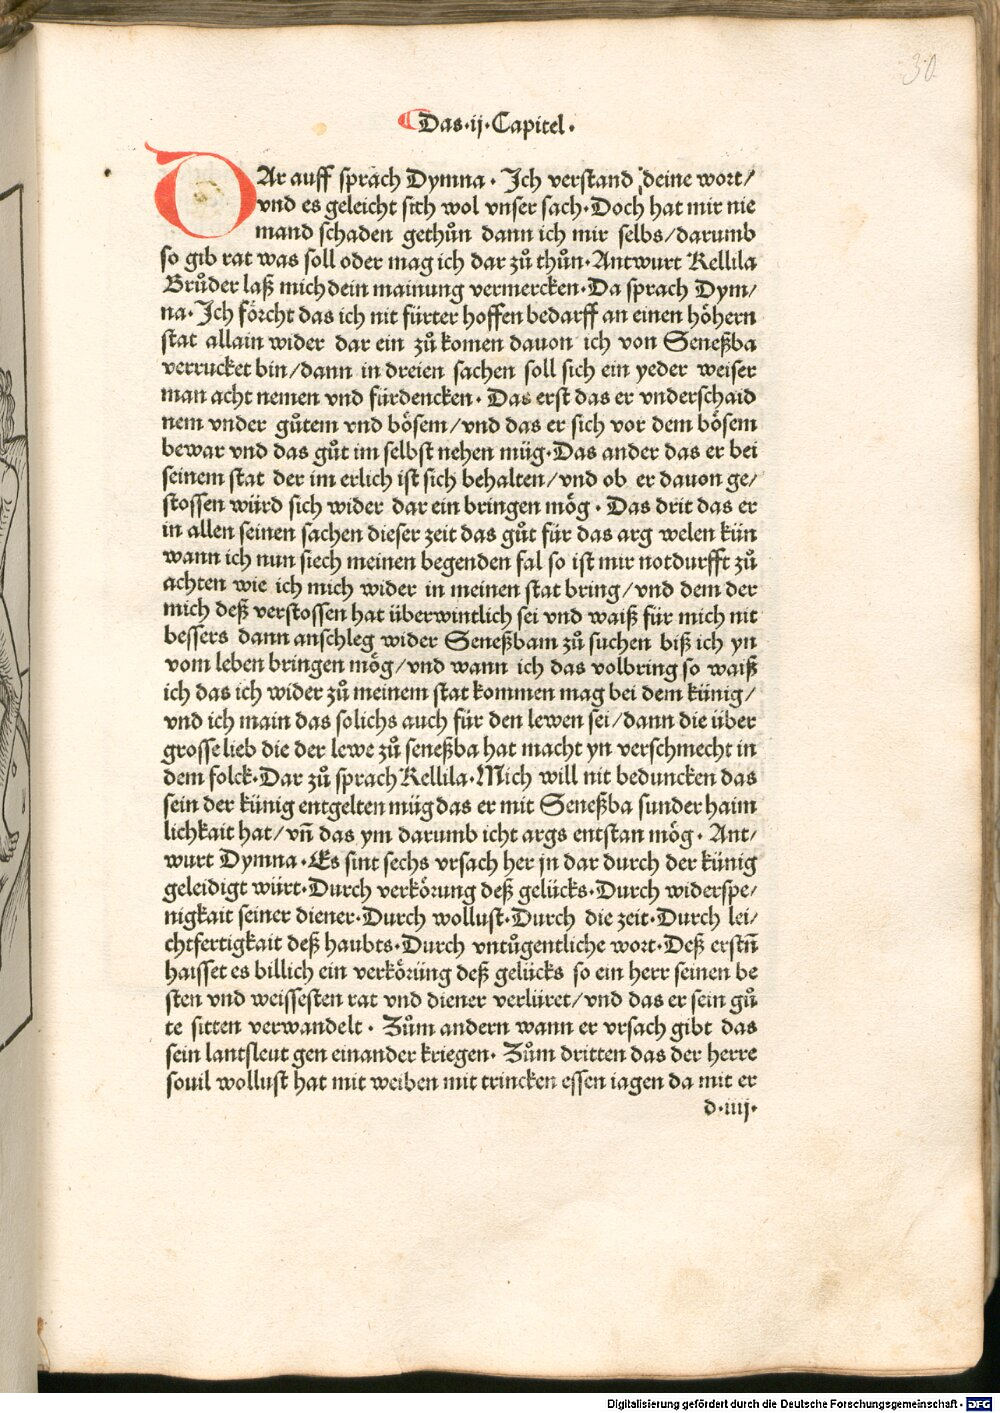 30
Das·ij·Capitel·
DAr auff sprach Dymna· Ich verstand deine wort/
vnd es geleicht sich wol vnser sach·Doch hat mir nie
mand schaden gethůn dann ich mir selbs/darumb
so gib rat was soll oder mag ich dar zů thůn·Antwurt Kellila
Brůder laß mich dein mainung vermercken·Da sprach Dym/
na·Ich förcht das ich nit fürter hoffen bedarff an einen höhern
stat allain wider dar ein zů komen dauon ich von Seneßba
verrucket bin/dann in dreien sachen soll sich ein yeder weiser
man acht nemen vnd fürdencken· Das erst das er vnderschaid
nem vnder gůtem vnd bösem/vnd das er sich vor dem bösem
bewar vnd das gůt im selbst nehen müg·Das ander das er bei
seinem stat der im erlich ist sich behalten/vnd ob er dauon ge/
stossen würd sich wider dar ein bringen mög· Das drit das er
in allen seinen sachen dieser zeit das gůt für das arg welen kün
wann ich nun siech meinen begenden fal so ist mir notdurfft zů
achten wie ich mich wider in meinen stat bring/vnd dem der
mich deß verstossen hat überwintlich sei vnd waiß für mich nit
bessers dann anschleg wider Seneßbam zů suchen biß ich yn
vom leben bringen mög/vnd wann ich das volbring so waiß
ich das ich wider zů meinem stat kommen mag bei dem künig/
vnd ich main das solichs auch für den lewen sei/dann die über
grosse lieb die der lewe zů seneßba hat macht yn verschmecht in
dem folck·Dar zů sprach Kellila·Mich will nit beduncken das
sein der künig entgelten müg das er mit Seneßba sunder haim
lichkait hat/vn̄ das ym darumb icht args entstan mög· Ant/
wurt Dymna·Es sint sechs vrsach her jn dar durch der künig
geleidigt würt·Durch verkörung deß gelücks·Durch widerspe/
nigkait seiner diener·Durch wollust·Durch die zeit·Durch lei/
chtfertigkait deß haubts·Durch vntůgentliche wort·Deß erstn̄
haisset es billich ein verkörüng deß gelücks so ein herr seinen be
sten vnd weissesten rat vnd diener verlüret/vnd das er sein gů
te sitten verwandelt· Zům andern wann er vrsach gibt das
sein lantsleut gen einander kriegen· Zům dritten das der herre
souil wollust hat mit weiben mit trincken essen iagen da mit er
d·iiij·
Digitalisierung gefördert durch die Deutsche Forschungsgemeinschaft - DFG